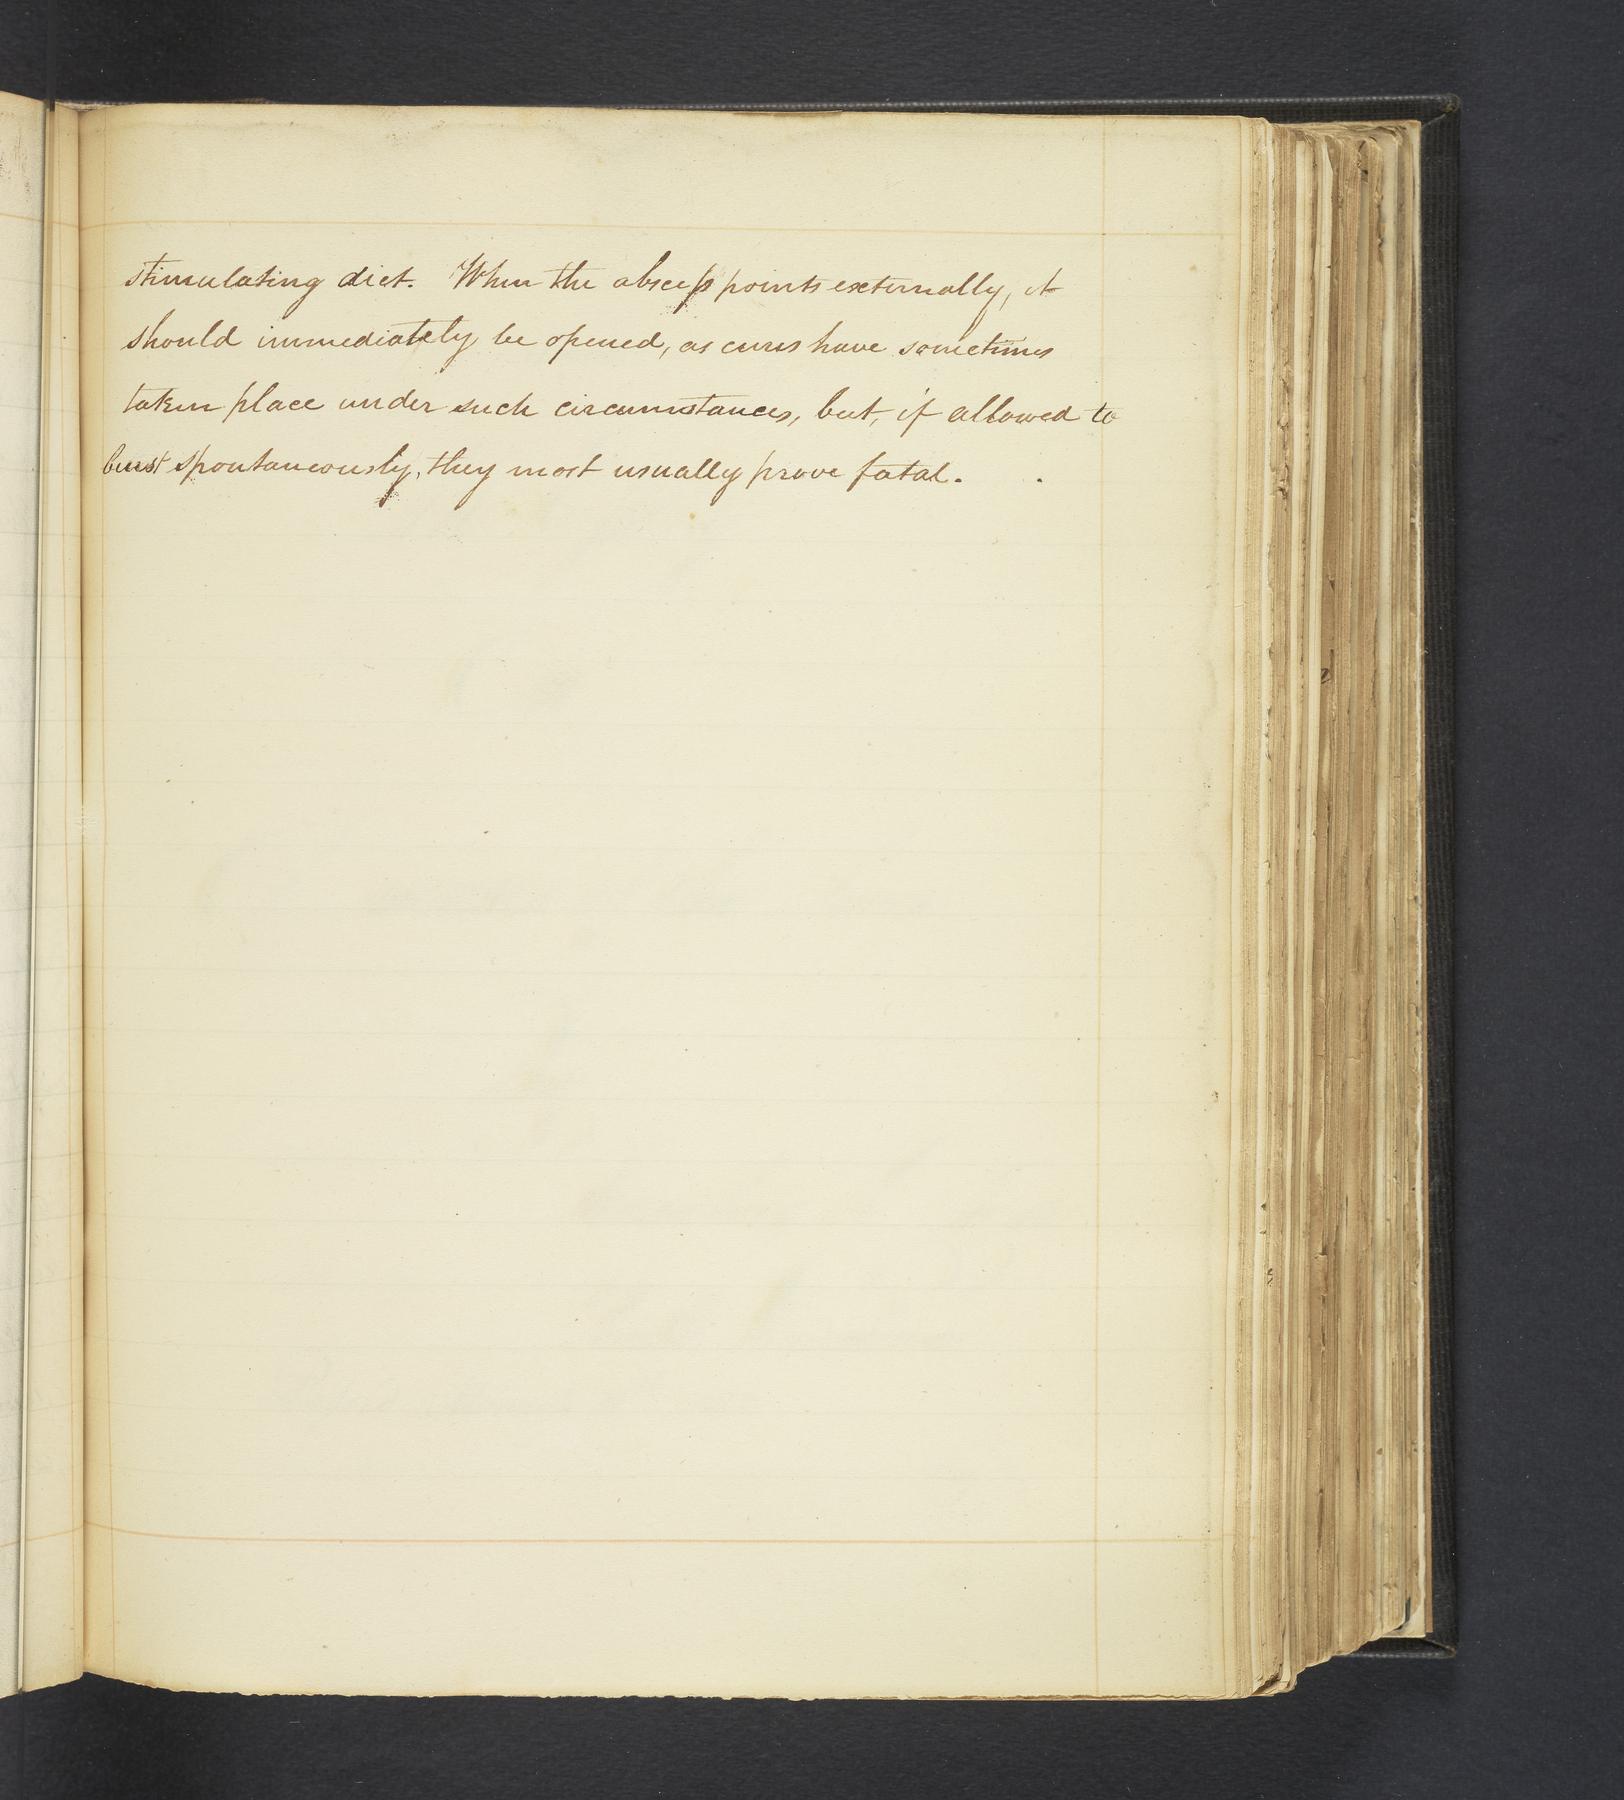 stimulating diet. When the abscess points externally, it
should immediately be opened, as cures have sometimes
taken place under such circumstances, but, if allowed to
burst spontaneously, they most usually prove fatal.